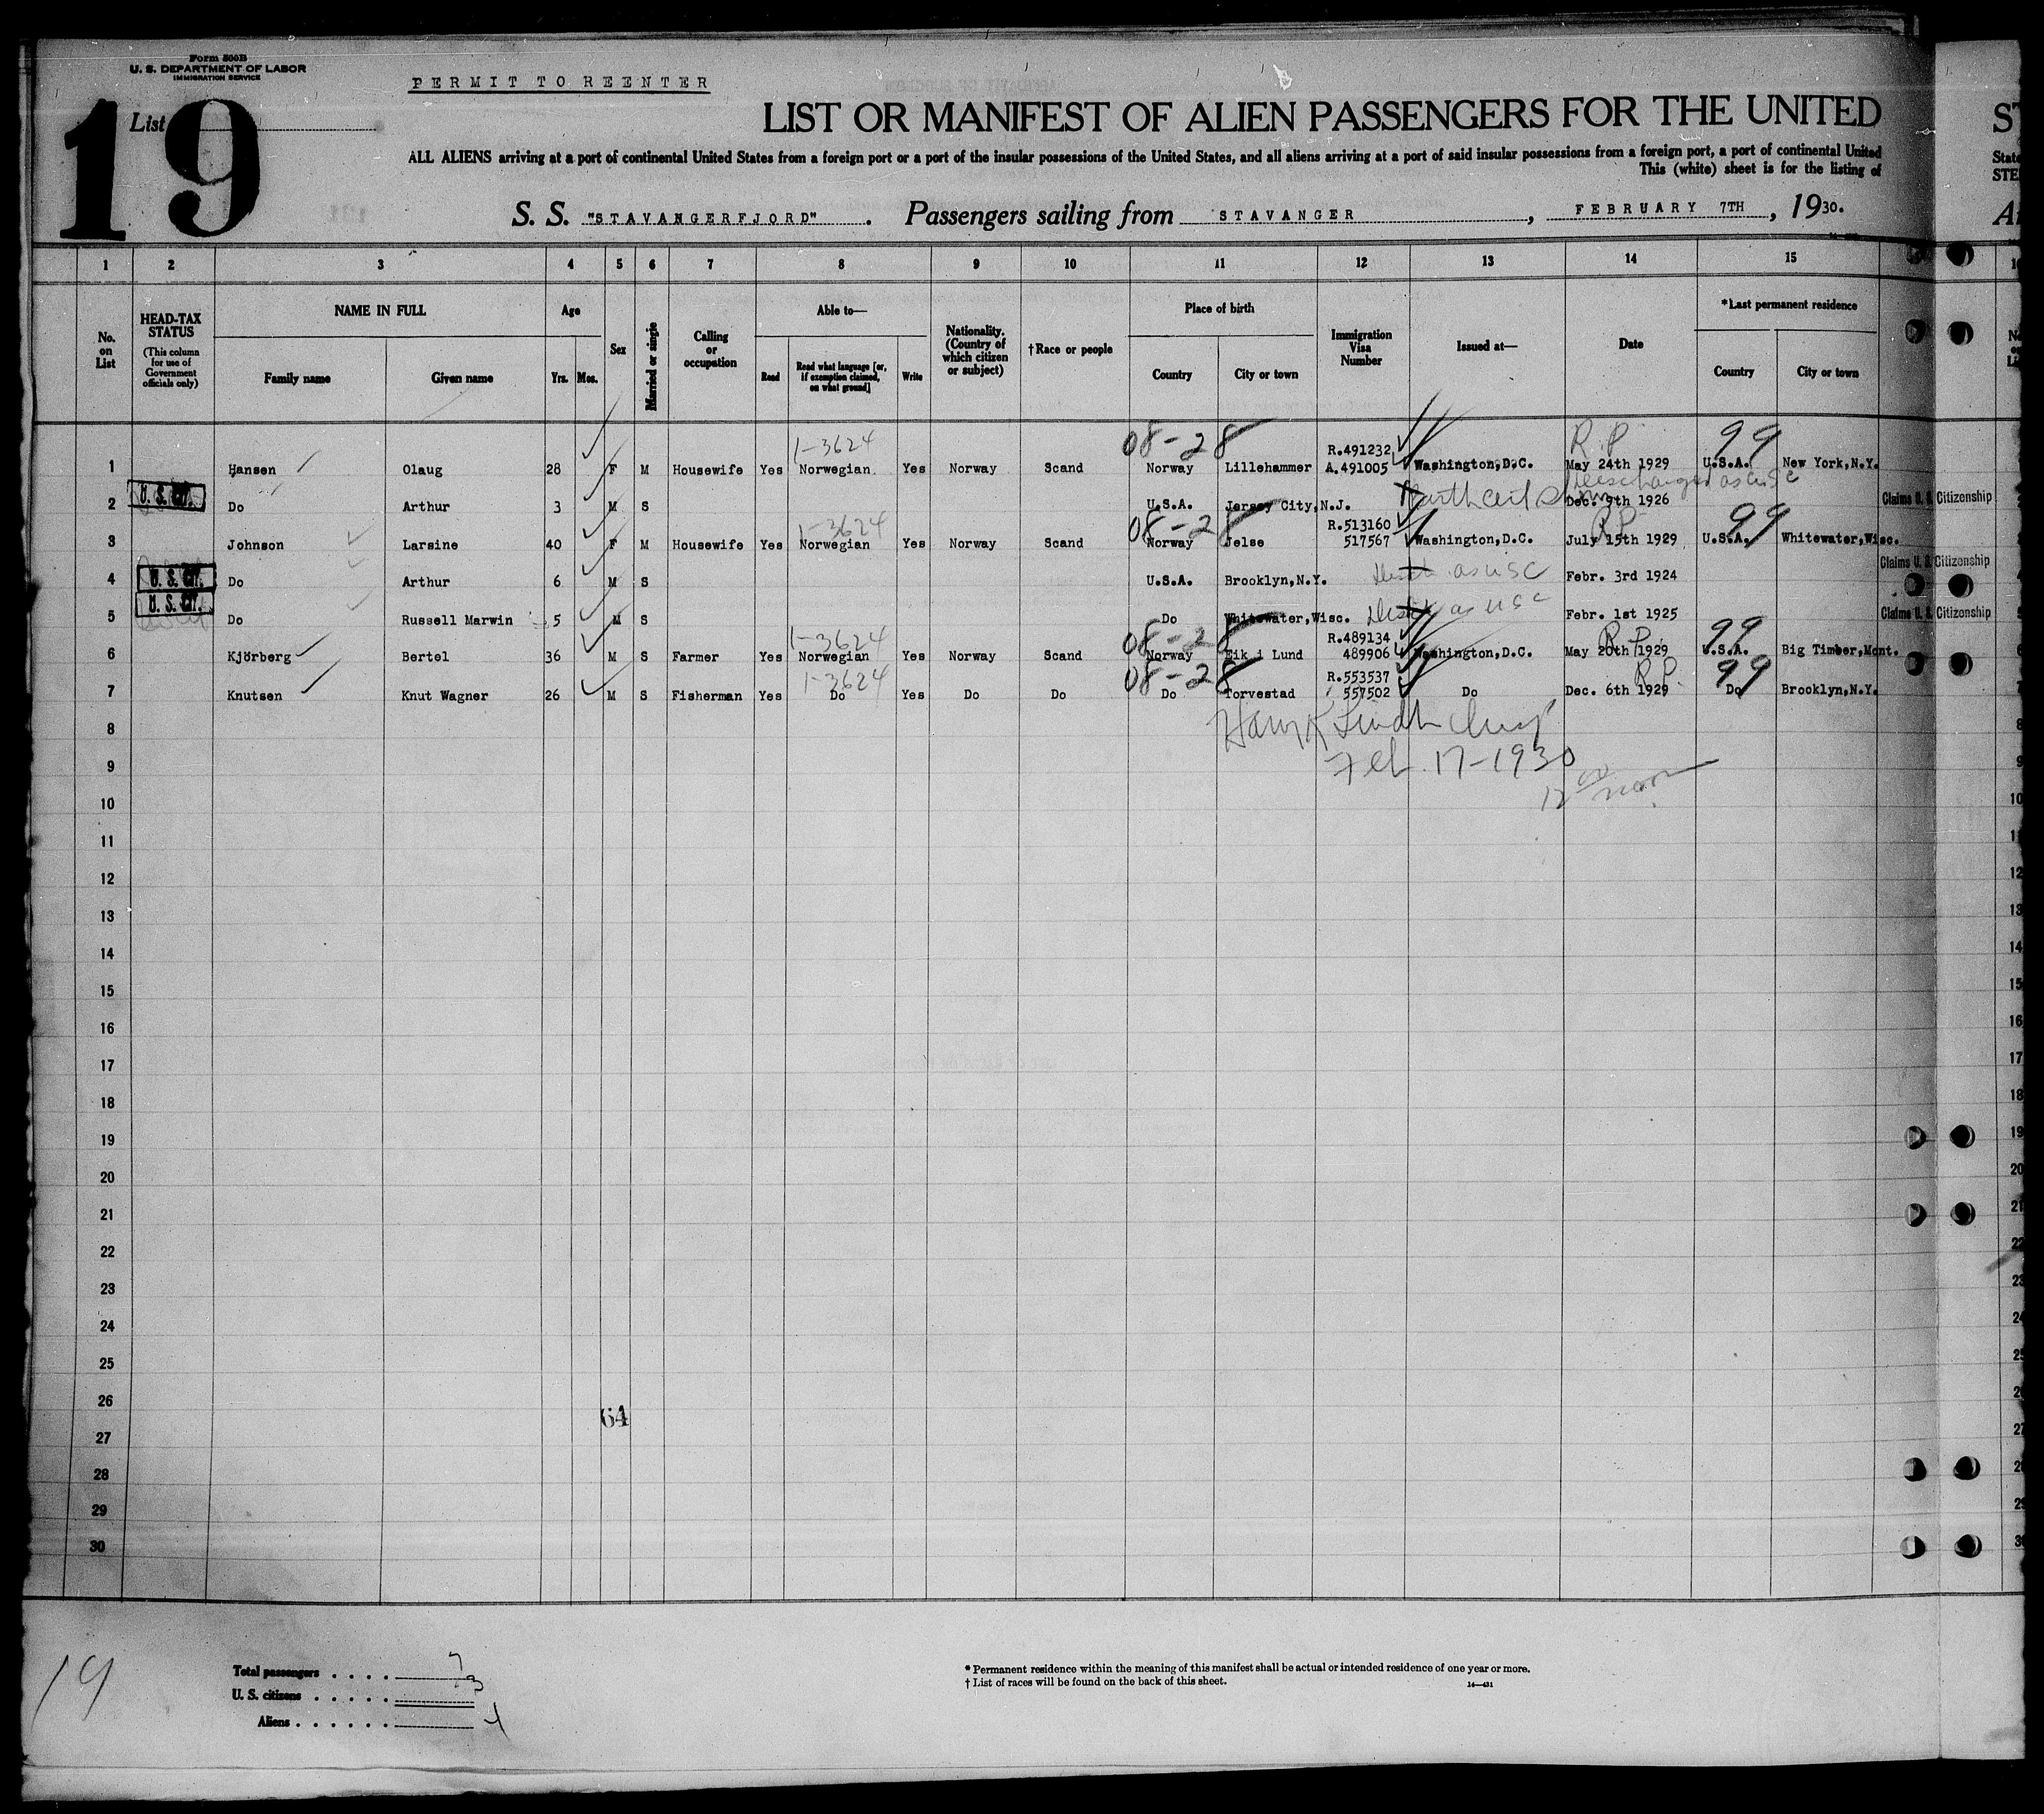 Form 500B
U. S. DEPARTMENT OF LABOR
IMMIGRATION SERVICE
PERMIT TO REENTER
List 19
LIST OR MANIFEST OF ALIEN PASSENGERS FOR THE UNITED
ALL ALIENS arriving at a port of continental United States from a foreign port or a port of the insular possessions of the United States, and all aliens arriving at a port of said insular possessions from a foreign port, a port of continental United
This (white) sheet is for the listing of
S. S. "STAVANGERFJORD". Passengers sailing from STAVANGER, FEBRUARY 7TH, 1930.
1 2 3 4 5 6 7 8 9 10 11 12 13 14 15
No. on List
HEAD-TAX STATUS (This column for use of Government officials only)
NAME IN FULL Family name Given name
Age Yrs. Mos.
Sex
Married or single
Calling or occupation
Able to— Read Read what language [or, if exemption claimed, on what ground] Write
Nationality. (Country of which citizen or subject)
†Race or people
Place of birth Country City or town
Immigration Visa Number
Issued at—
Date
*Last permanent residence Country City or town
08-28 1-3624 R.491232 R.P 99
1 Hansen Olaug 28 F M Housewife Yes Norwegian Yes Norway Scand Norway Lillehammer A.491005 Washington,D.C. May 24th 1929 U.S.A. New York,N.Y.
Discharged as USC
2 U. S. CIT. Do Arthur 3 M S U.S.A. Jersey City,N.J. Birth Cert Dec. 9th 1926 Claims U. S. Citizenship
08-28 1-3624 R.513160 R.P. 99
3 Johnson Larsine 40 F M Housewife Yes Norwegian Yes Norway Scand Norway Jelse 517567 Washington,D.C. July 15th 1929 U.S.A. Whitewater,Wisc.
4 U. S. CIT. Do Arthur 6 M S U.S.A. Brooklyn,N.Y. as USC Febr. 3rd 1924 Claims U. S. Citizenship
5 U. S. CIT. Do Russell Marwin 5 M S Do Whitewater,Wisc. as USC Febr. 1st 1925 Claims U. S. Citizenship
08-28 1-3624 R.489134 R.P. 99
6 Kjörberg Bertel 36 M S Farmer Yes Norwegian Yes Norway Scand Norway Eik i Lund 489906 Washington,D.C. May 20th 1929 U.S.A. Big Timber,Mont.
08-28 1-3624 R.553537 R.P. 99
7 Knutsen Knut Wagner 26 M S Fisherman Yes Do Yes Do Do Do Torvestad 557502 Do Dec. 6th 1929 Do Brooklyn,N.Y.
8 Harry K Lindh Insp
9 Feb. 17-1930
10 12 00 noon
11
12
13
14
15
16
17
18
19
20
21
22
23
24
25
26
64
27
28
29
30
19
Total passengers 7
U. S. citizens 3
Aliens 4
* Permanent residence within the meaning of this manifest shall be actual or intended residence of one year or more.
† List of races will be found on the back of this sheet.
14—431